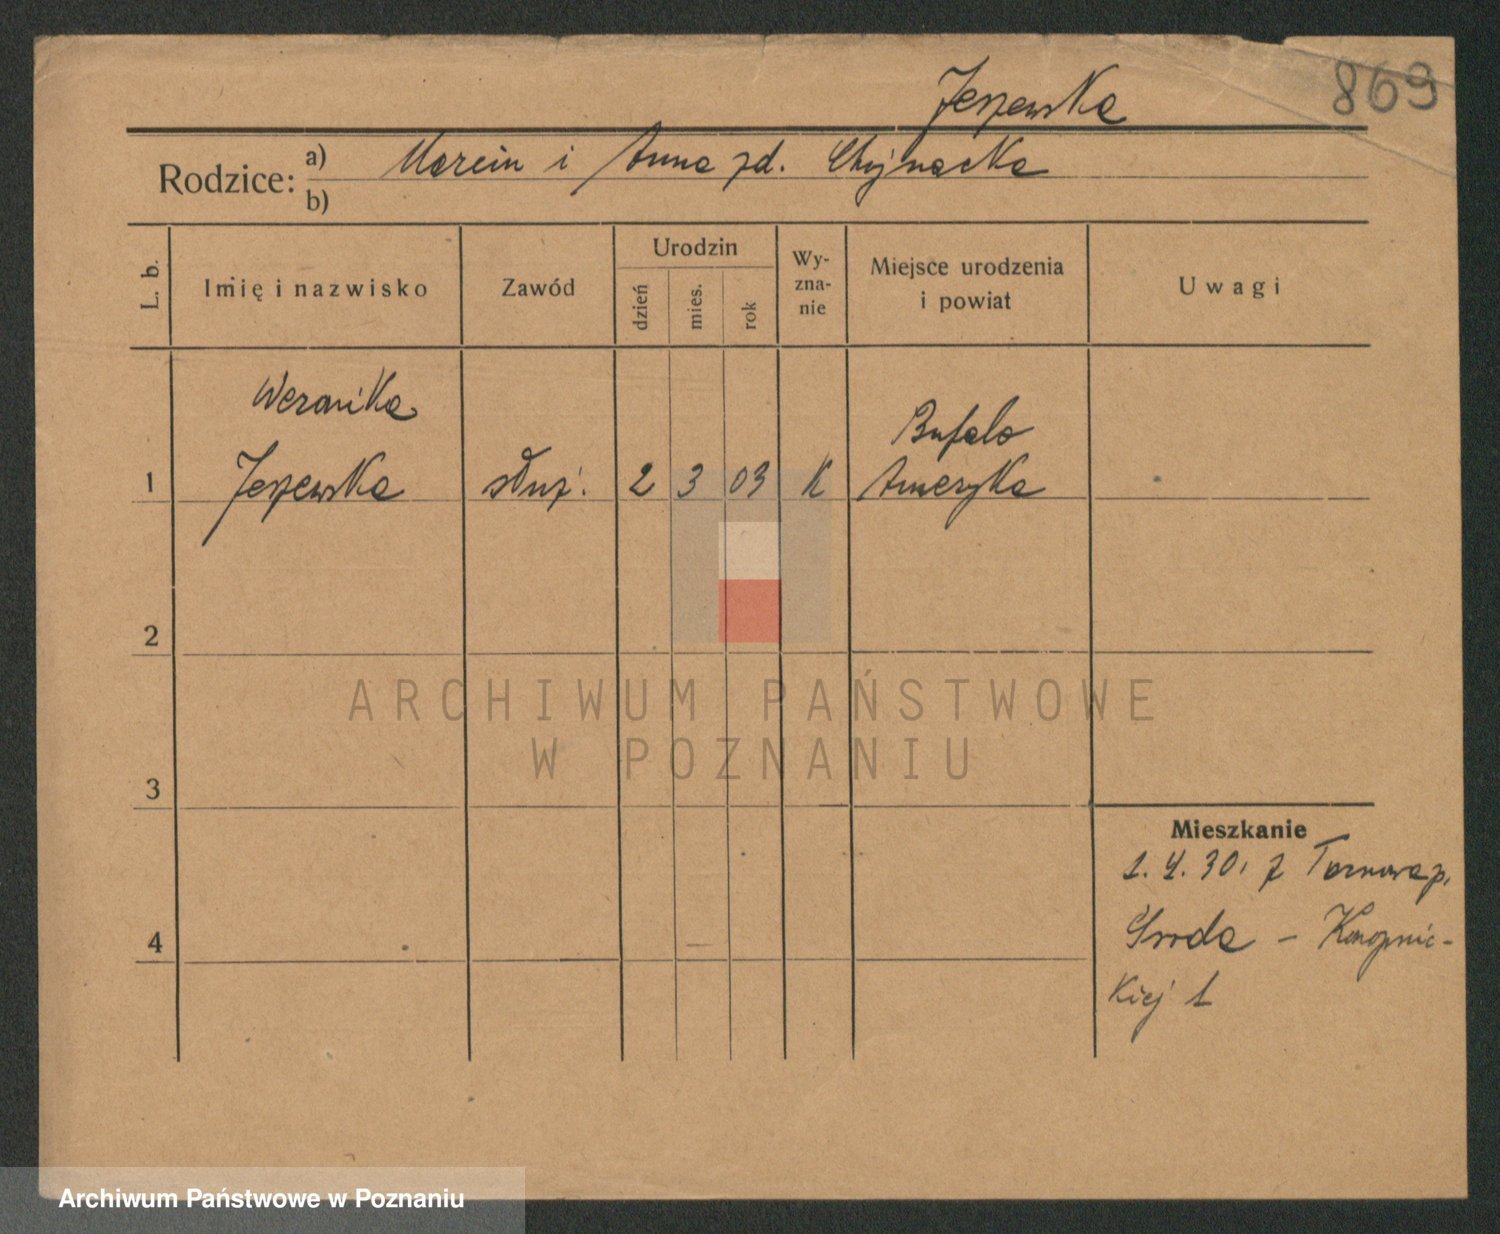 Jeszewska
869
Rodzice: a) Marcin i Anna zd. Chojnacka
b)
L. b.
Imię i nazwisko
Zawód
Urodzin
dzień
mies.
rok
Wy-
zna-
nie
Miejsce urodzenia
i powiat
Uwagi
Weronika
Bufalo
1 Jeszewska służ. 2 3 03 K Ameryka
2
ARCHIWUM PAŃSTWOWE
W POZNANIU
3
Mieszkanie
1.4.30. z
4 Środa - Konopnic-
kiej 1
Archiwum Państwowe w Poznaniu